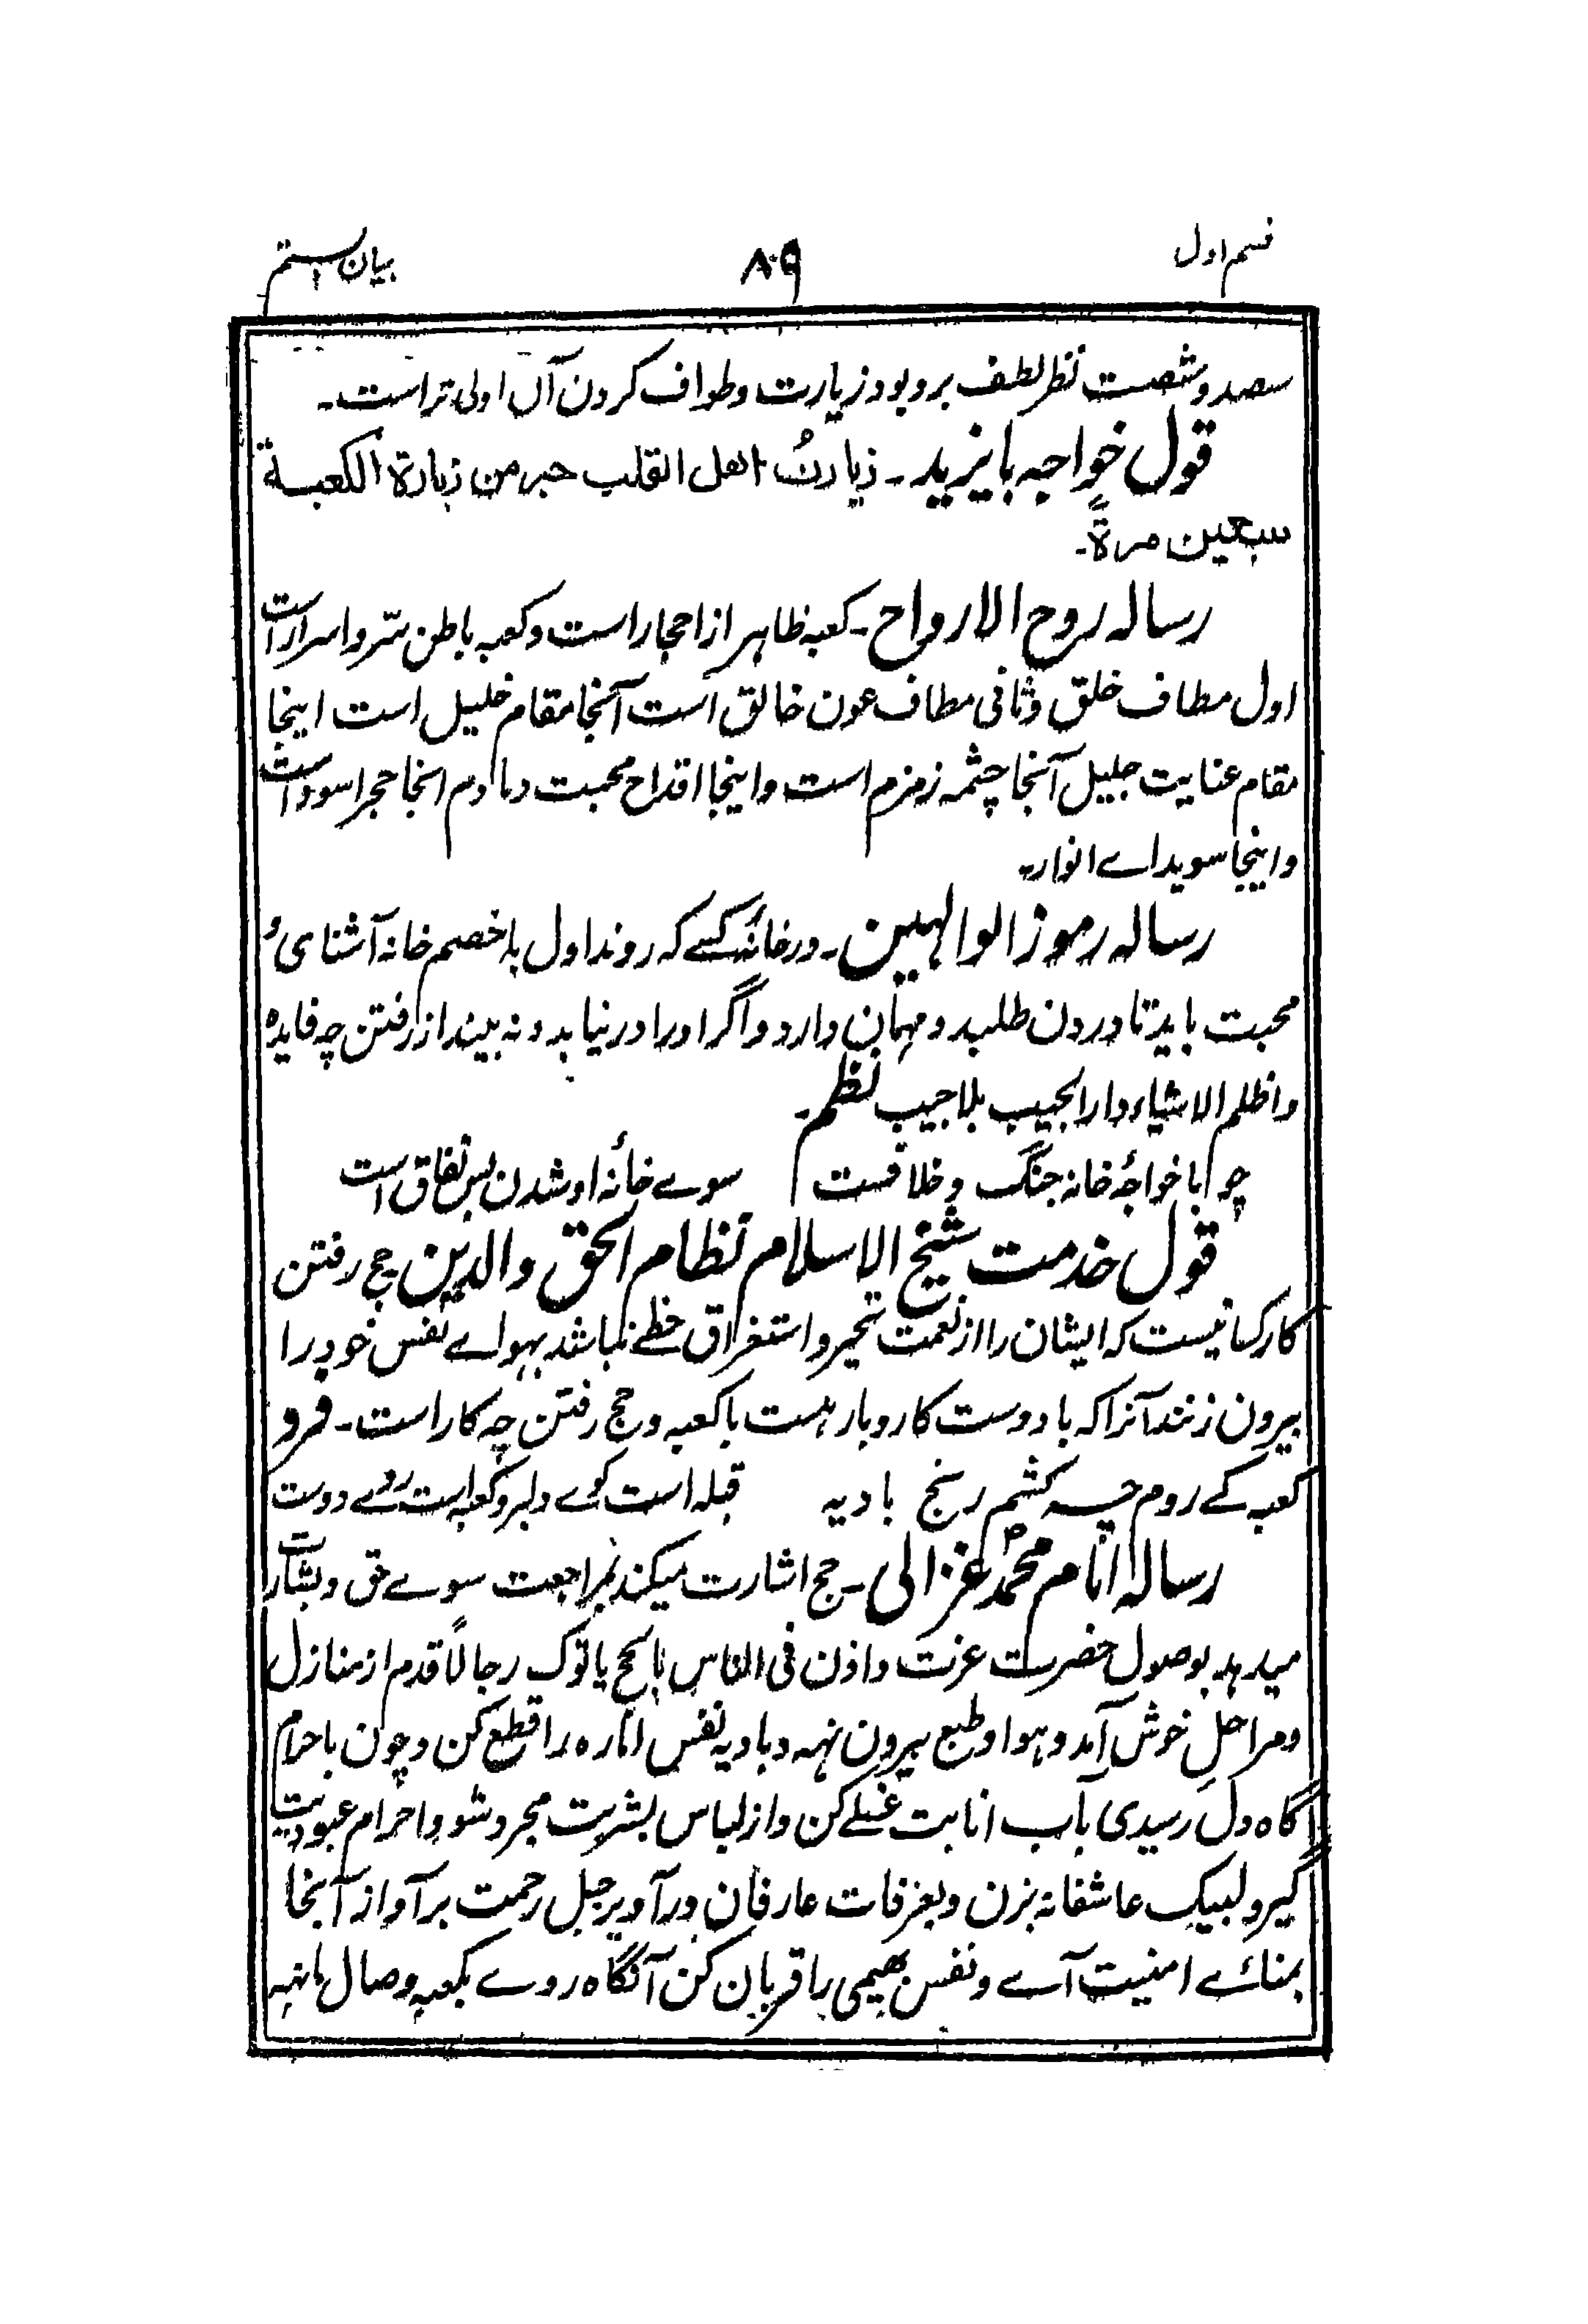 قسم اول
۸۰۹
بیان ہشتم
سصد و شصت نظر لطف برو بود زیارت و طواف کردن آں اولی تر است۔
قول خواجہ بایزید۔ زیارۃُ اهل القلب خیر من زیارة الکعبة
سبعین مرةً۔
رسالہ روح الارواح۔ کعبہ ظاہر از احجار است و کعبہ باطن سّر و اسرار است
اول مطاف خلق و ثانی مطاف عون خالق است آنجا مقام خلیل است اینجا
مقام عنایت جلیل آنجا چشمہ زمزم است و اینجا اقداح محبت دمادم انجا حجر اسود است
و اینجا سویداے انوار۔
رسالہ رموز الوالہین۔ در خانۂ کسے کہ روند اول با خصم خانہ آشنائ ُ
محبت باید تا درون طلبد و مہمان دارد و اگر او را در نیابد و نہ بیند از رفتن چہ فایدہ
و اظلم الاشیاء دار الحبیب بلا حبیب نظم۔
چو با خواجۂ خانہ جنگ و خلافست سوے خانۂ او شدن بس نفاق است
قول خدمت شیخ الاسلام نظام الحق والدین حج رفتن
کار کسانیست کہ ایشان را از نعمت تحیر و استغراق حظے نباشد بہواے نفس خود را
بیرون زنند آنرا کہ با دوست کار و بار ہست با کعبہ و حج رفتن چہ کار است۔ فرد
کعبہ کے روم چہ کشم رنج بادیہ قبلہ است کوے دلبر و کعبہ است روے دوست
رسالہ امام محمد غزالی۔ حج اشارت میکند بمراجعت سوے حق و بشارت
میدہد بوصول حضرت عزت و اذن فی الناس بالحج یاتوک رجالاً قدم از منازل
و مراحل خوش آمد و ہوا و طبع بیرون نہہ و بادیہ نفس امارہ را قطع کن و چون باحرام
گاہ دل رسیدی بآب انابت غسلے کن و از لباس بشریت مجرد شو و احرام عبودیت
گیر و لبیک عاشقانہ بزن و بعرفات عارفان درآ و بر جبل رحمت برآ و از آنجا
بمناے امنیت آے و نفس بهیمی را قربان کن آنگاہ روے بکعبہ وصال ما نہہ